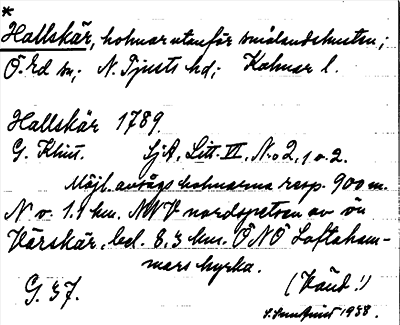 *
Hallskär, holmar utanför smålandskusten;
Ö. Ed sn; N. Tjusts hd; Kalmar l.
Hallskär 1789.
G. Klint. SjA, Litt. VI, N:o 2, 1 o. 2.
Möjl. avsågs holmarna resp. 900 m.
N o. 1.1 km. NNV nordspetsen av ön
Vårskär, bel. 8,3 km. ÖNÖ Loftaham-
mars kyrka.
(Vänd!)
G. 37.
1938.